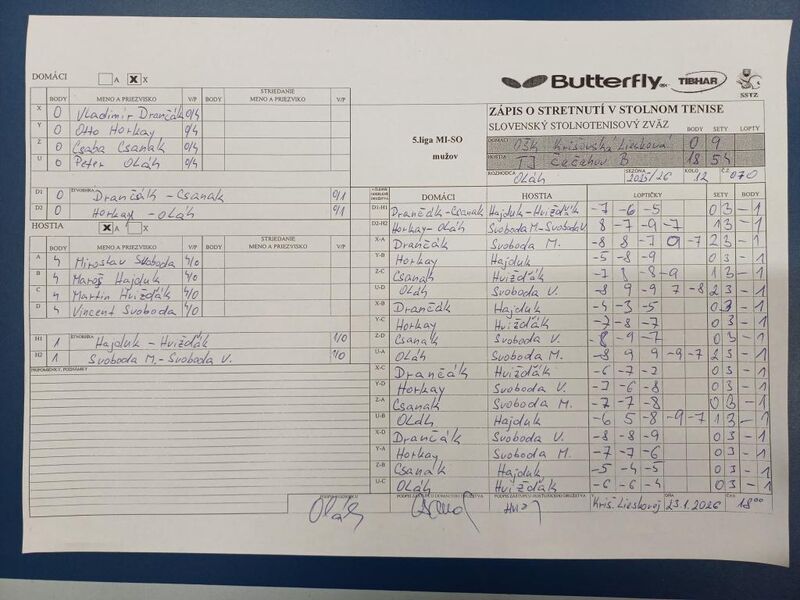 DOMÁCI A X X
Butterfly TIBHAR SSTZ
BODY MENO A PRIEZVISKO V/P BODY STRIEDANIE MENO A PRIEZVISKO V/P
X 0 Vladimír Drančák 0/4
Y 0 Otto Horkay 0/4
Z 0 Csaba Csanak 0/4
U 0 Peter Oláh 0/4
D1 0 ŠTVORHRA Drančák - Csanak 0/1
D2 0 Horkay - Oláh 0/1
HOSTIA X A
BODY MENO A PRIEZVISKO V/P BODY STRIEDANIE MENO A PRIEZVISKO V/P
A 4 Miroslav Svoboda 4/0
B 4 Maroš Hajduk 4/0
C 4 Martin Hvižďák 4/0
D 4 Vincent Svoboda 4/0
H1 1 ŠTVORHRA Hajduk - Hvižďák 1/0
H2 1 Svoboda M. - Svoboda V. 1/0
PRIPOMIENKY, POZNÁMKY
5.liga MI-SO
mužov
ZÁPIS O STRETNUTÍ V STOLNOM TENISE
SLOVENSKÝ STOLNOTENISOVÝ ZVÄZ BODY SETY LOPTY
DOMÁCI OŠK Krišovská Liesková 0 9
HOSTIA TJ Čečehov B 18 54
ROZHODCA Oláh SEZÓNA 2025/26 KOLO 12 Č.Z. 070
DOMÁCI HOSTIA LOPTIČKY SETY BODY
D1-H1 Drančák - Csanak Hajduk - Hvižďák -7 -6 -5 0 3 - 1
D2-H2 Horkay - Oláh Svoboda M. - Svoboda V. 8 -7 -9 -7 1 3 - 1
X-A Drančák Svoboda M. -8 8 -7 9 -7 2 3 - 1
Y-B Horkay Hajduk -5 -8 -9 0 3 - 1
Z-C Csanak Hvižďák -7 8 -8 -9 1 3 - 1
U-D Oláh Svoboda V. -8 9 -9 7 -8 2 3 - 1
X-B Drančák Hajduk -4 -3 -5 0 3 - 1
Y-C Horkay Hvižďák -7 -8 -7 0 3 - 1
Z-D Csanak Svoboda V. -8 -9 -7 0 3 - 1
U-A Oláh Svoboda M. -8 9 9 -9 -7 2 3 - 1
X-C Drančák Hvižďák -6 -7 -2 0 3 - 1
Y-D Horkay Svoboda V. -7 -6 -8 0 3 - 1
Z-A Csanak Svoboda M. -7 -7 -8 0 3 - 1
U-B Oláh Hajduk -6 5 -8 -9 -7 1 3 - 1
X-D Drančák Svoboda V. -8 -8 -9 0 3 - 1
Y-A Horkay Svoboda M. -7 -7 -6 0 3 - 1
Z-B Csanak Hajduk -5 -4 -5 0 3 - 1
U-C Oláh Hvižďák -6 -6 -4 0 3 - 1
PODPIS ROZHODCU PODPIS ZÁSTUPCU DOMÁCEHO DRUŽSTVA PODPIS ZÁSTUPCU HOSŤUJÚCEHO DRUŽSTVA V DŇA ČAS
Oláh Kriš. Lieskovej 23.1.2026 18⁰⁰